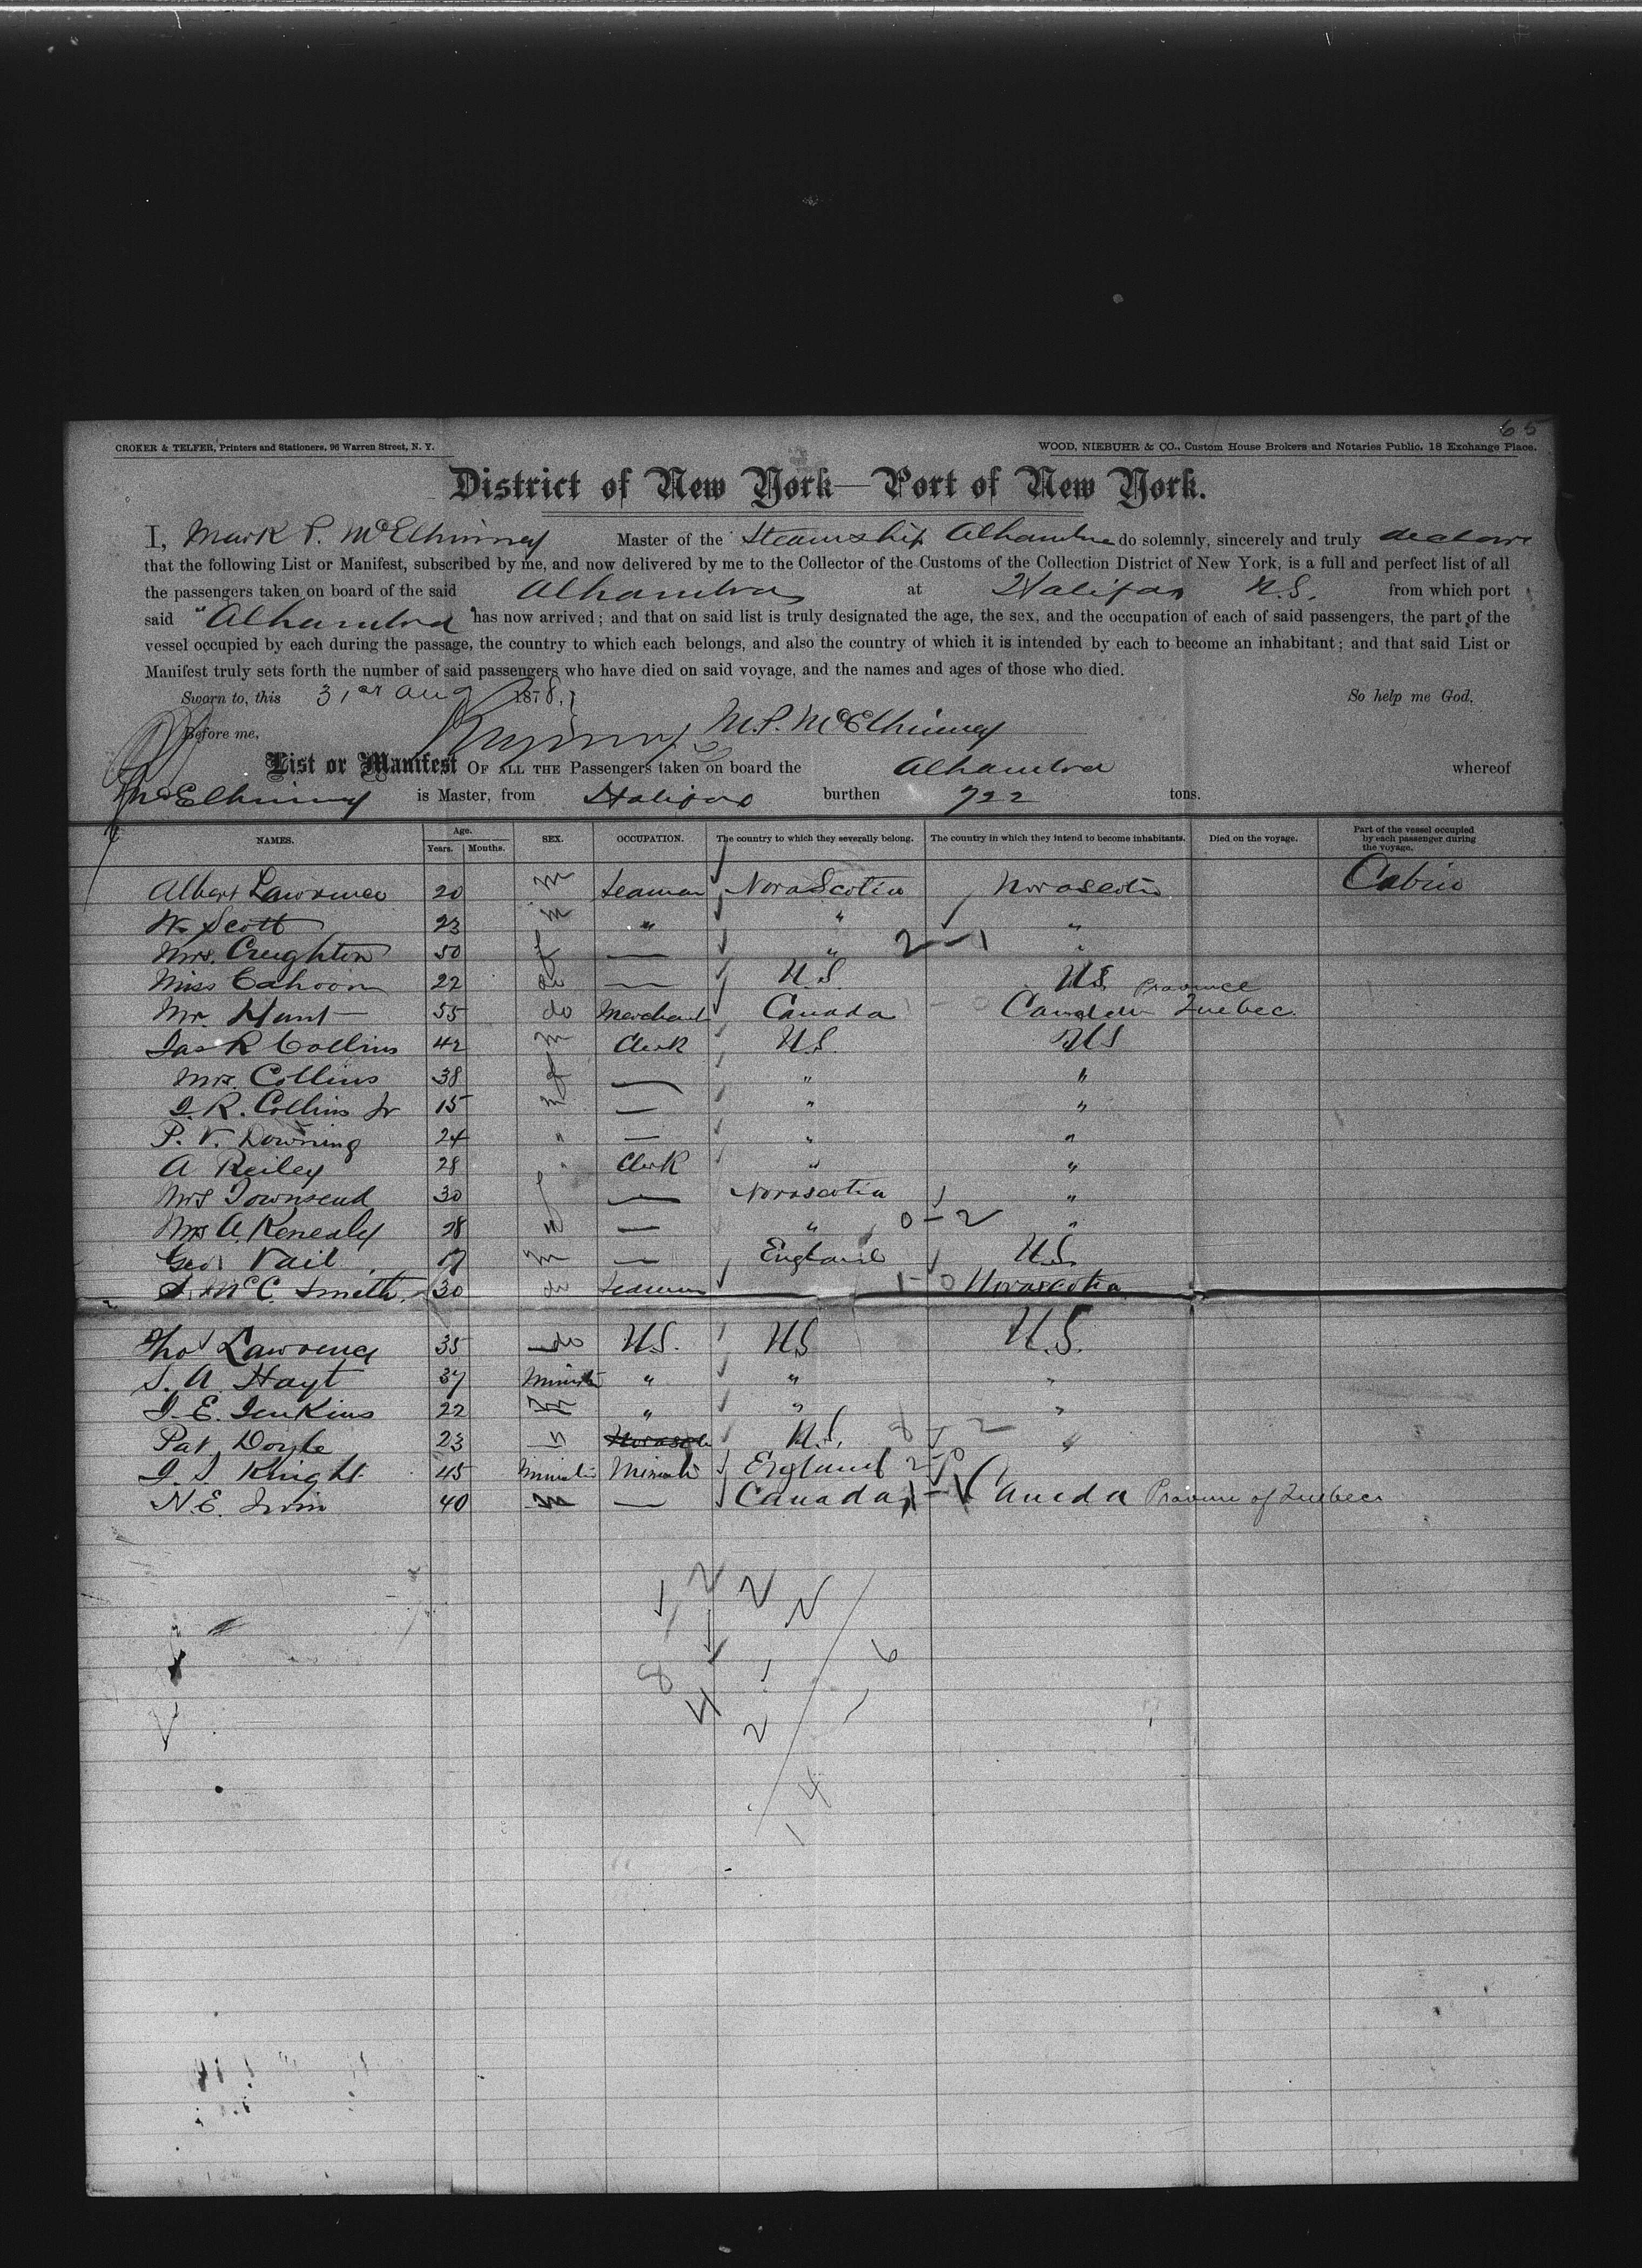 65
CROKER & TELFER, Printers and Stationers, 96 Warren Street, N. Y.
WOOD, NIEBUHR & CO., Custom House Brokers and Notaries Public, 18 Exchange Place.
District of New York—Port of New York.
I, Mark P. McElhinney Master of the Steamship Alhambra do solemnly, sincerely and truly declare
that the following List or Manifest, subscribed by me, and now delivered by me to the Collector of the Customs of the Collection District of New York, is a full and perfect list of all
the passengers taken on board of the said Alhambra at Halifax N.S. from which port
said "Alhambra" has now arrived; and that on said list is truly designated the age, the sex, and the occupation of each of said passengers, the part of the
vessel occupied by each during the passage, the country to which each belongs, and also the country of which it is intended by each to become an inhabitant; and that said List or
Manifest truly sets forth the number of said passengers who have died on said voyage, and the names and ages of those who died.
Sworn to, this 31st Aug 1878, So help me God,
Before me, M.P. McElhinney
List or Manifest OF ALL THE Passengers taken on board the Alhambra whereof
McElhinney is Master, from Halifax burthen 722 tons.
NAMES. Age. Years. Months. SEX. OCCUPATION. The country to which they severally belong. The country in which they intend to become inhabitants. Died on the voyage. Part of the vessel occupied by each passenger during the voyage.
Albert Lawrence 20 m Seaman Nova Scotia Novascotia Cabin
W. Scott 23 m " " "
Mrs. Creighton 50 f — " 2-1 "
Miss Cahoon 22 do — U.S. U.S.
Mr. Hunt 55 do Merchant Canada Canada Province Quebec
Jas R Collins 42 m Clerk U.S. U.S
Mrs. Collins 38 f — " "
J. R. Collins Jr 15 m — " "
P. V. Downing 24 " — " "
A Reiley 28 " Clerk " "
Mrs Townsend 30 f — Novascotia "
Mrs A. Kenealy 28 " — " 0-2 "
Geo Vail 17 m — England U.S.
S. McC. Smith 30 do Seaman 1-0 Novascotia
Thos Lawrence 35 do U.S. U.S U.S.
S. A. Hayt 37 Minister " " "
J. E. Jenkins 22 m " " "
Pat Doyle 23 " N.S. 2 "
J. S. Knight 45 Minister Minister England
N. E. Irvin 40 m — Canada Canada Province of Quebec